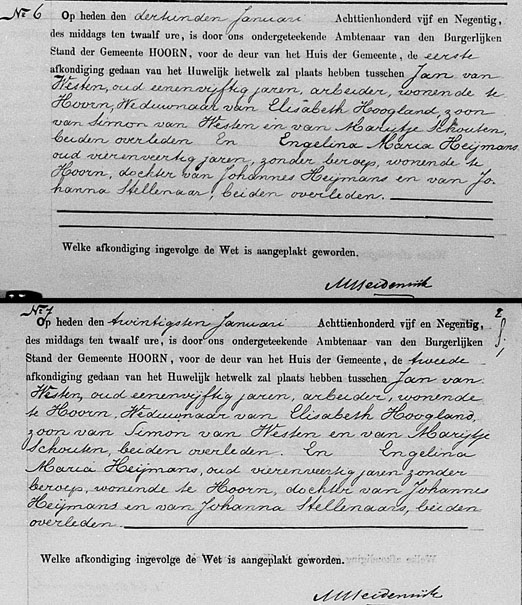 No 6
Op heden den dertienden Januari Achttienhonderd vijf en Negentig,
des middags ten twaalf ure, is door ons ondergeteekende Ambtenaar van den Burgerlijken
Stand der Gemeente HOORN, voor de deur van het Huis der Gemeente, de eerste
afkondiging gedaan van het Huwelijk hetwelk zal plaats hebben tusschen Jan van
Westen, oud eenenvijftig jaren, arbeider, wonende te
Hoorn, Weduwnaar van Elisabeth Hoogland, zoon
van Simon van Westen en van Marijtje Schouten,
beiden overleden En Engelina Maria Heijmans,
oud vierenveertig jaren, zonder beroep, wonende te
Hoorn, dochter van Johannes Heijmans en van Jo-
hanna Stellenaar, beiden overleden.
Welke afkondiging ingevolge de Wet is aangeplakt geworden.
No 7
Op heden den twintigsten Januari Achttienhonderd vijf en Negentig,
des middags ten twaalf ure, is door ons ondergeteekende Ambtenaar van den Burgerlijken
Stand der Gemeente HOORN, voor de deur van het Huis der Gemeente, de tweede
afkondiging gedaan van het Huwelijk hetwelk zal plaats hebben tusschen Jan van
Westen, oud eenenvijftig jaren, arbeider, wonende
te Hoorn, Weduwnaar van Elisabeth Hoogland,
zoon van Simon van Westen en van Marijtje
Schouten, beiden overleden. En Engelina
Maria Heijmans, oud vierenveertig jaren zonder
beroep, wonende te Hoorn, dochter van Johannes
Heijmans en van Johanna Stellenaars, beiden
overleden.
Welke afkondiging ingevolge de Wet is aangeplakt geworden.